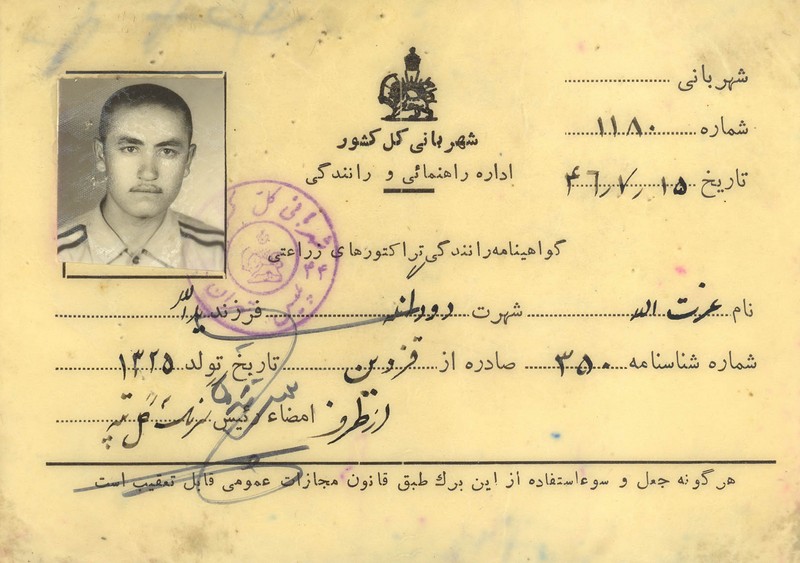 شهربانی
شماره ۱۱۸۰
تاریخ ۱۵ ر ۷ ر ۴۶
شهربانی کل کشور
اداره راهنمائی و رانندگی
گواهینامه رانندگی تراکتورهای زراعتی
نام عزت الله شهرت فرزند یدالله
شماره شناسنامه ۳۵۰ صادره از قزوین تاریخ تولد ۱۳۲۵
از طرف امضاء رئیس
هرگونه جعل و سوءاستفاده از این برك طبق قانون مجازات عمومی قابل تعقیب است